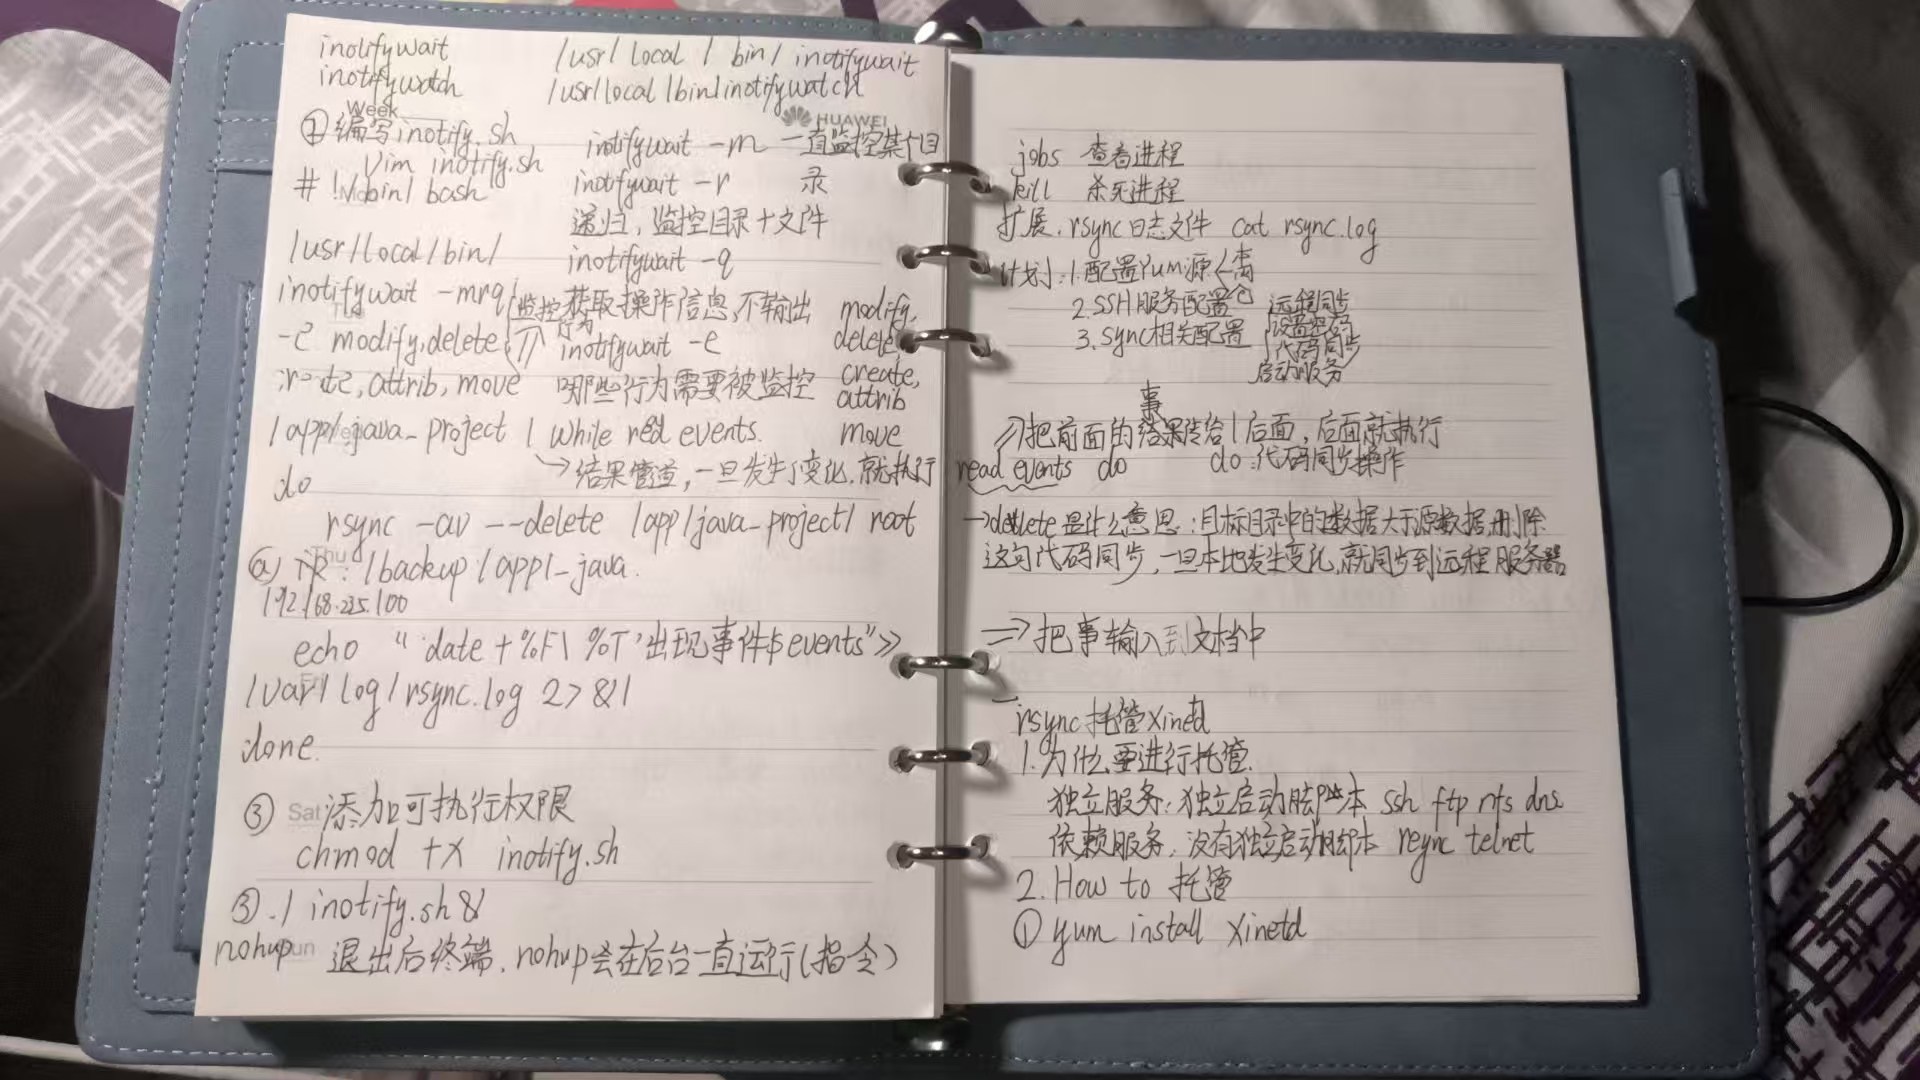 inotifywait /usr/local/bin/inotifywait
inotifywatch /usr/local/bin/inotifywatch
Week
HUAWEI
① 编写inotify.sh
Vim inotify.sh
#!/bin/bash
/usr/local/bin/
inotifywait -mrq
-e modify,delete
attrib, move
/app/java_project | while red events.
do
rsync -av --delete /app/java_project/ root
Thu
@ : /backup/app/_java.
192.168.235.100
echo "`date +%F\ %T`出现事件$events">>
/var/log/rsync.log 2>&1
done.
③ Sat 添加可执行权限
chmod +x inotify.sh
③ ./inotify.sh&
nohup 退出后终端,nohup会在后台一直运行(指令)
inotifywait -m 一直监控某个目
录
inotifywait -r
递归,监控目录+文件
inotifywait -q
监控 获取操作信息,不输出
行为
inotifywait -e
哪些行为需要被监控
modify,
delete,
create,
attrib
move
→结果管道,一旦发生了变化,就执行
jobs 查看进程
kill 杀死进程
扩展.rsync日志文件 cat rsync.log
计划:1.配置Yum源
2.SSH服务配置
3.Sync相关配置
远程同步
代码同步
启动服务
事
把前面的结果传给|后面,后面就执行
read events do do:代码同步操作
→delete是什么意思:目标目录中的数据大于源数据,删除
这句代码同步,一旦本地发生变化,就同步到远程服务器
⇒把事输入到文档中
rsync托管Xinetd
1.为什么要进行托管.
独立服务:独立启动脚本 ssh ftp nfs dns
依赖服务:没有独立启动脚本 rsync telnet
2.How to 托管
① yum install xinetd